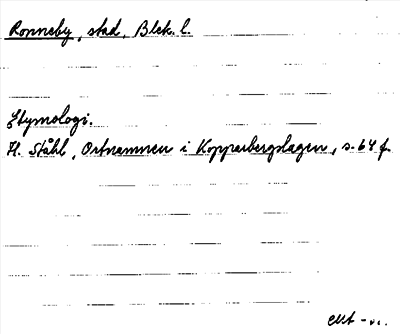 Ronneby, stad, Blek. l.
Etymologi.
H. Ståhl, Ortnamnen i Kopparbergslagen, s. 64 f.